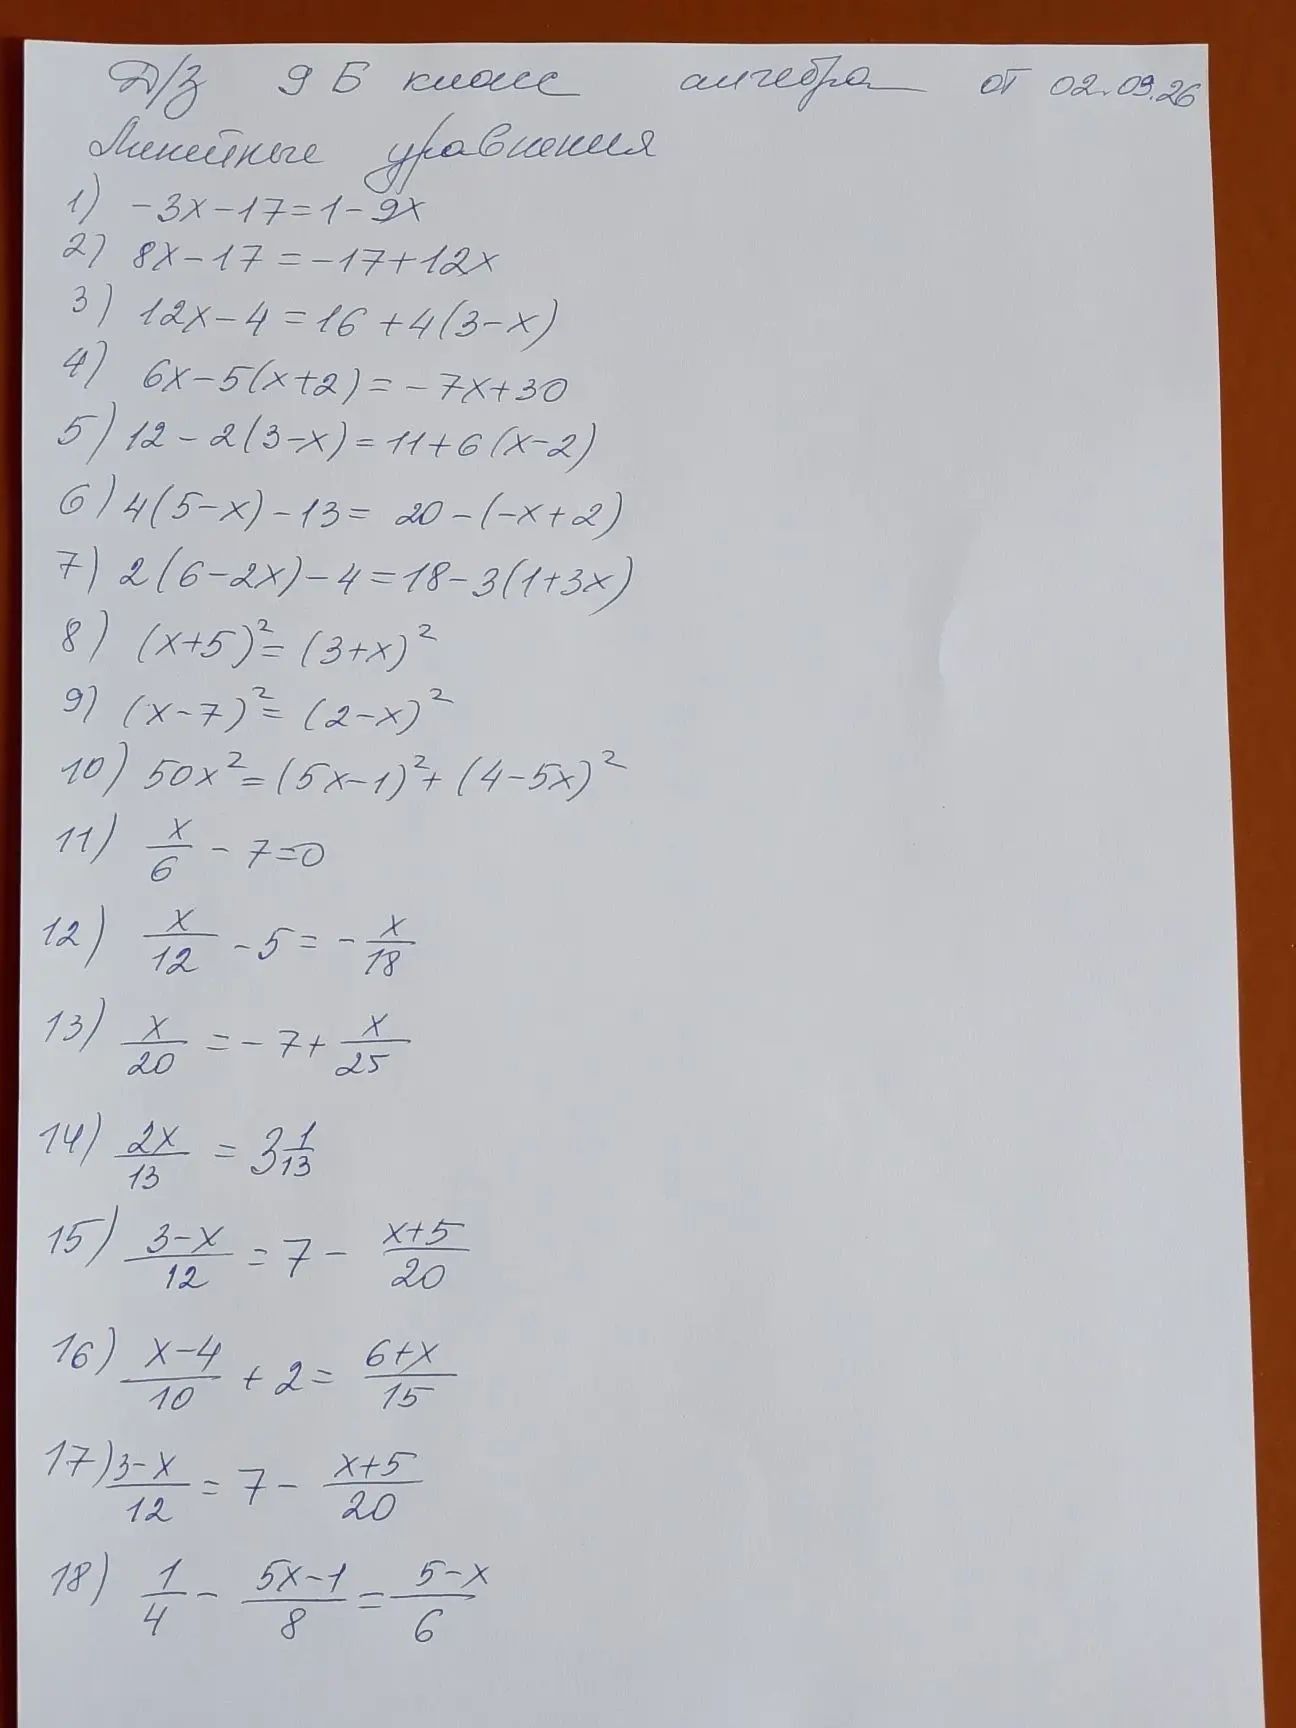 Д/З 9 Б класс алгебра от 02.09.26
Линейные уравнения
1) -3x-17=1-9x
2) 8x-17=-17+12x
3) 12x-4=16+4(3-x)
4) 6x-5(x+2)=-7x+30
5) 12-2(3-x)=11+6(x-2)
6) 4(5-x)-13=20-(-x+2)
7) 2(6-2x)-4=18-3(1+3x)
8) (x+5)²=(3+x)²
9) (x-7)²=(2-x)²
10) 50x²=(5x-1)²+(4-5x)²
11) x/6 - 7=0
12) x/12 - 5 = - x/18
13) x/20 = - 7 + x/25
14) 2x/13 = 3 1/13
15) (3-x)/12 = 7 - (x+5)/20
16) (x-4)/10 + 2 = (6+x)/15
17) (3-x)/12 = 7 - (x+5)/20
18) 1/4 - (5x-1)/8 = (5-x)/6